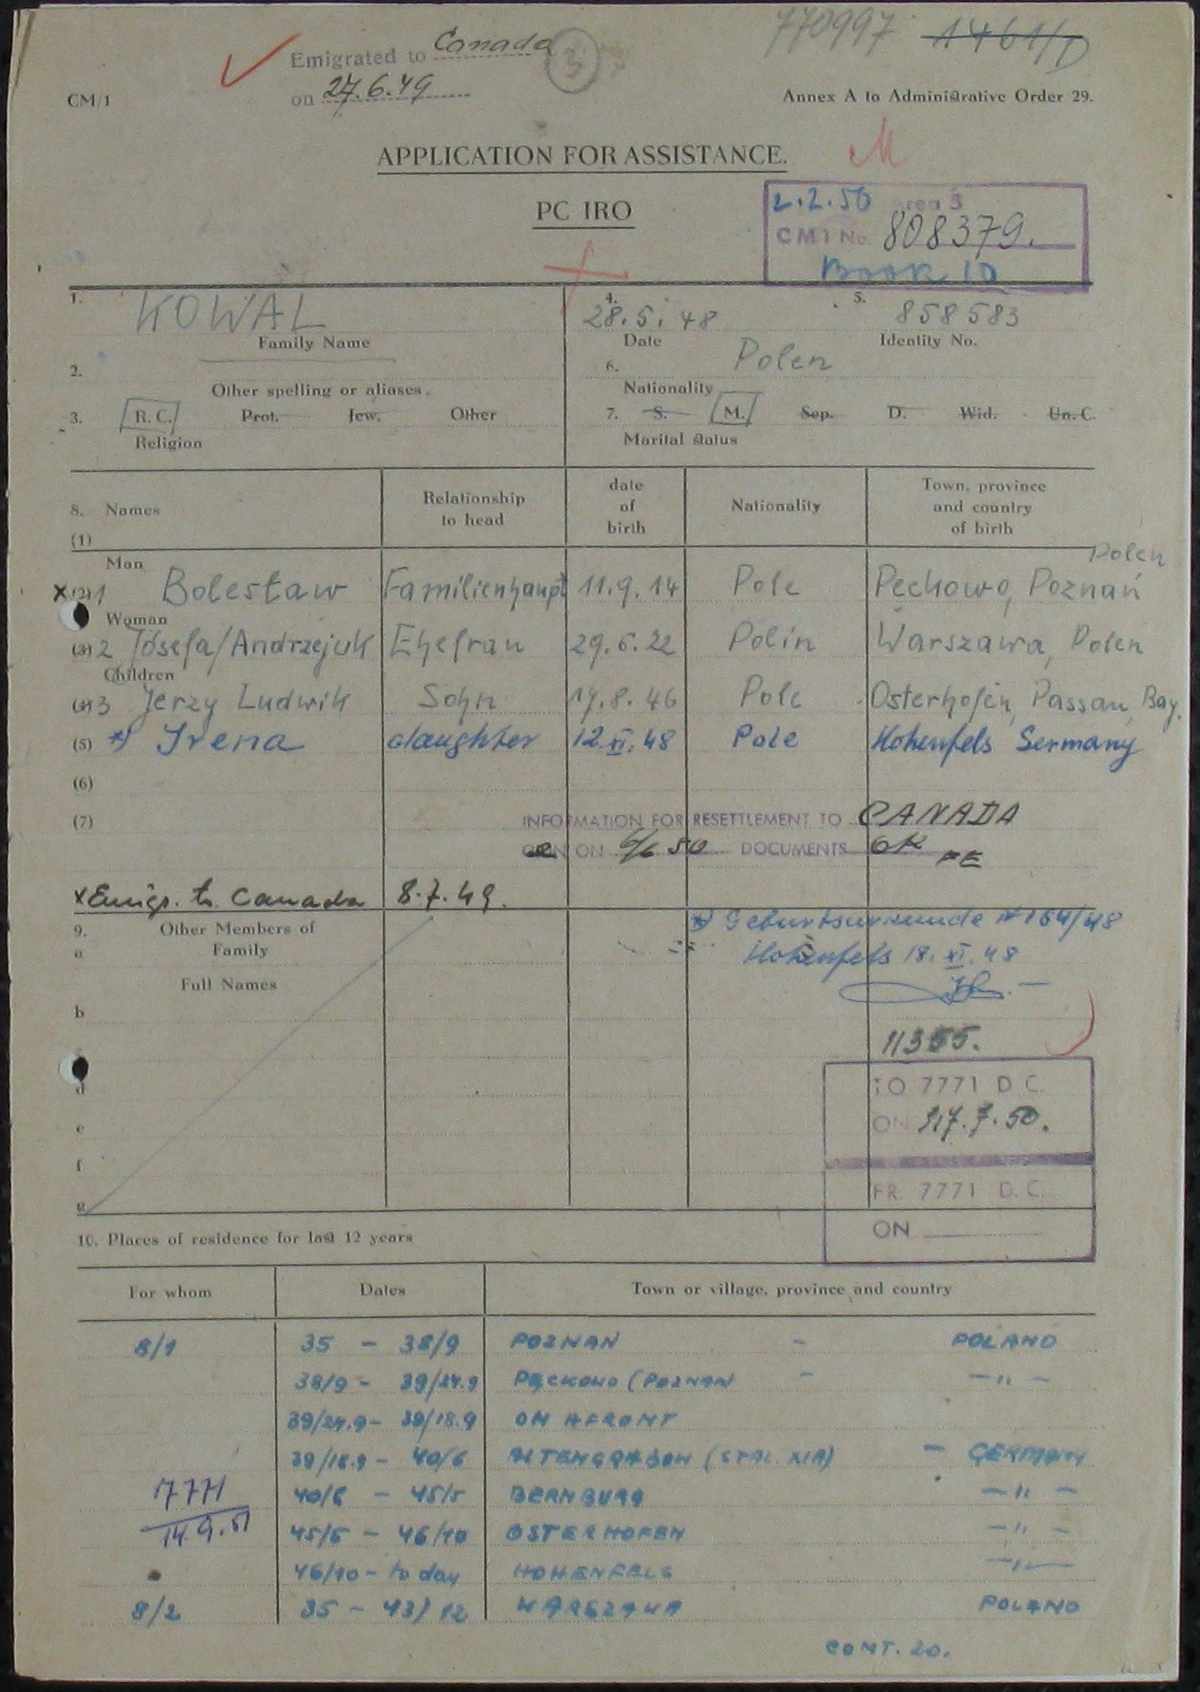 770997 1461/D
Emigrated to Canada 3
on 27.6.49
CM/1 Annex A to Administrative Order 29.
APPLICATION FOR ASSISTANCE. M
PC IRO
2.2.50 Area 3
CM1 No. 808379.
BOOK 10
1. KOWAL 4. 28.5.48 5. 858583
Family Name Date Identity No.
2. 6. Polen
Other spelling or aliases. Nationality
3. R. C. Prot. Jew. Other 7. S. M. Sep. D. Wid. Un. C.
Religion Marital status
8. Names Relationship to head date of birth Nationality Town, province and country of birth
(1)
Man Polen
x (2) 1 Bolesław Familienhaupt 11.9.14 Pole Pechowo, Poznań
Woman
(3) 2 Józefa/Andrzejuk Ehefrau 29.6.22 Polin Warszawa, Polen
Children
3 Jerzy Ludwik Sohn 19.8.46 Pole Osterhofen, Passau, Bay.
(5) *) Irena daughter 12.XI.48 Pole Hohenfels Germany
(6)
(7) INFORMATION FOR RESETTLEMENT TO CANADA
ON 6/6 50 DOCUMENTS OK
x Emigr. to Canada 8.7.49.
9. Other Members of Family *) Geburtsurkunde № 164/48
a Hohenfels 18.XI.48
Full Names
b
11355.
TO 7771 D.C.
d
ON 17.7.50.
e
f
FR. 7771 D.C.
g
ON
10. Places of residence for last 12 years
For whom Dates Town or village, province and country
8/1 35 - 38/9 POZNAN - POLAND
38/9 - 39/24.9 PĘCKOWO (POZNAN - -"-
39/24.9 - 39/18.9 ON AFRONT
39/18.9 - 40/6 ALTENGRABOW (STAL. XIA) - GERMANY
7771 40/6 - 45/5 BERNBURG -"-
14.9.51 45/5 - 46/10 OSTERHOFEN -"-
46/10 - to day HOHENFELS -"-
8/2 35 - 43/12 WARSZAWA POLAND
CONT. 20.